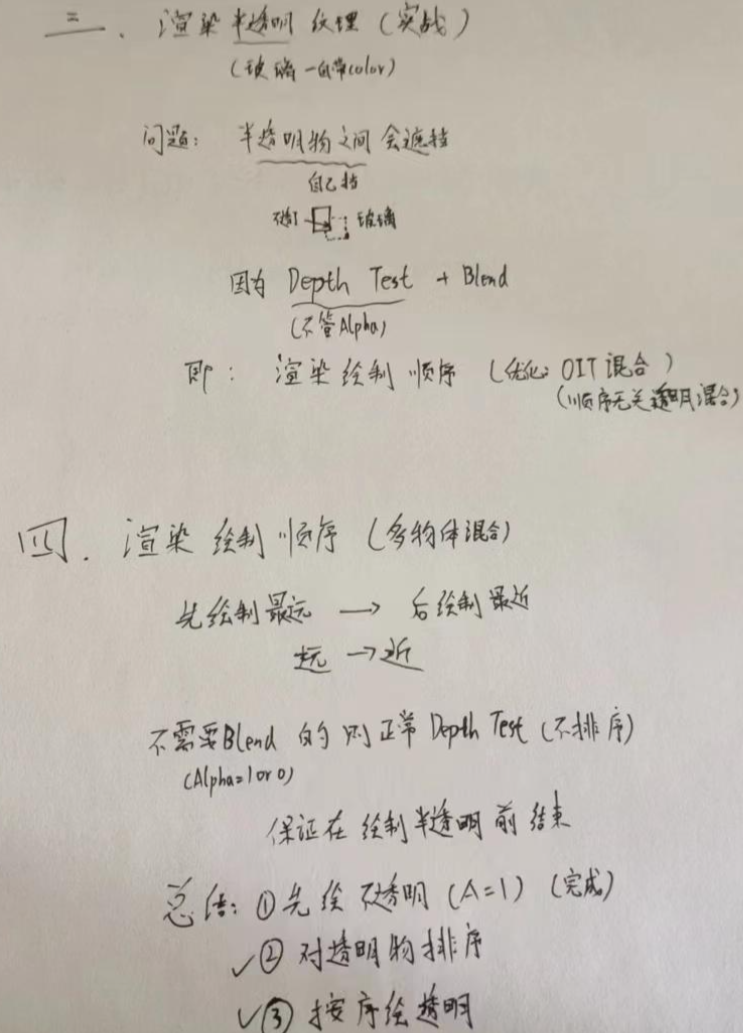 三、渲染半透明纹理（实战）
（玻璃—自带color）
问题：半透明物之间会遮挡
自己挡
玻璃
因为 Depth Test + Blend
（不管Alpha）
即：渲染绘制顺序（优化：OIT混合）
（顺序无关透明混合）
四．渲染绘制顺序（多物体混合）
先绘制最远 → 后绘制最近
远 → 近
不需要Blend的则正常Depth Test（不排序）
（Alpha=1 or 0）
保证在绘制半透明前结束
总结：①先绘不透明（A=1）（完成）
✓②对透明物排序
✓③按序绘透明